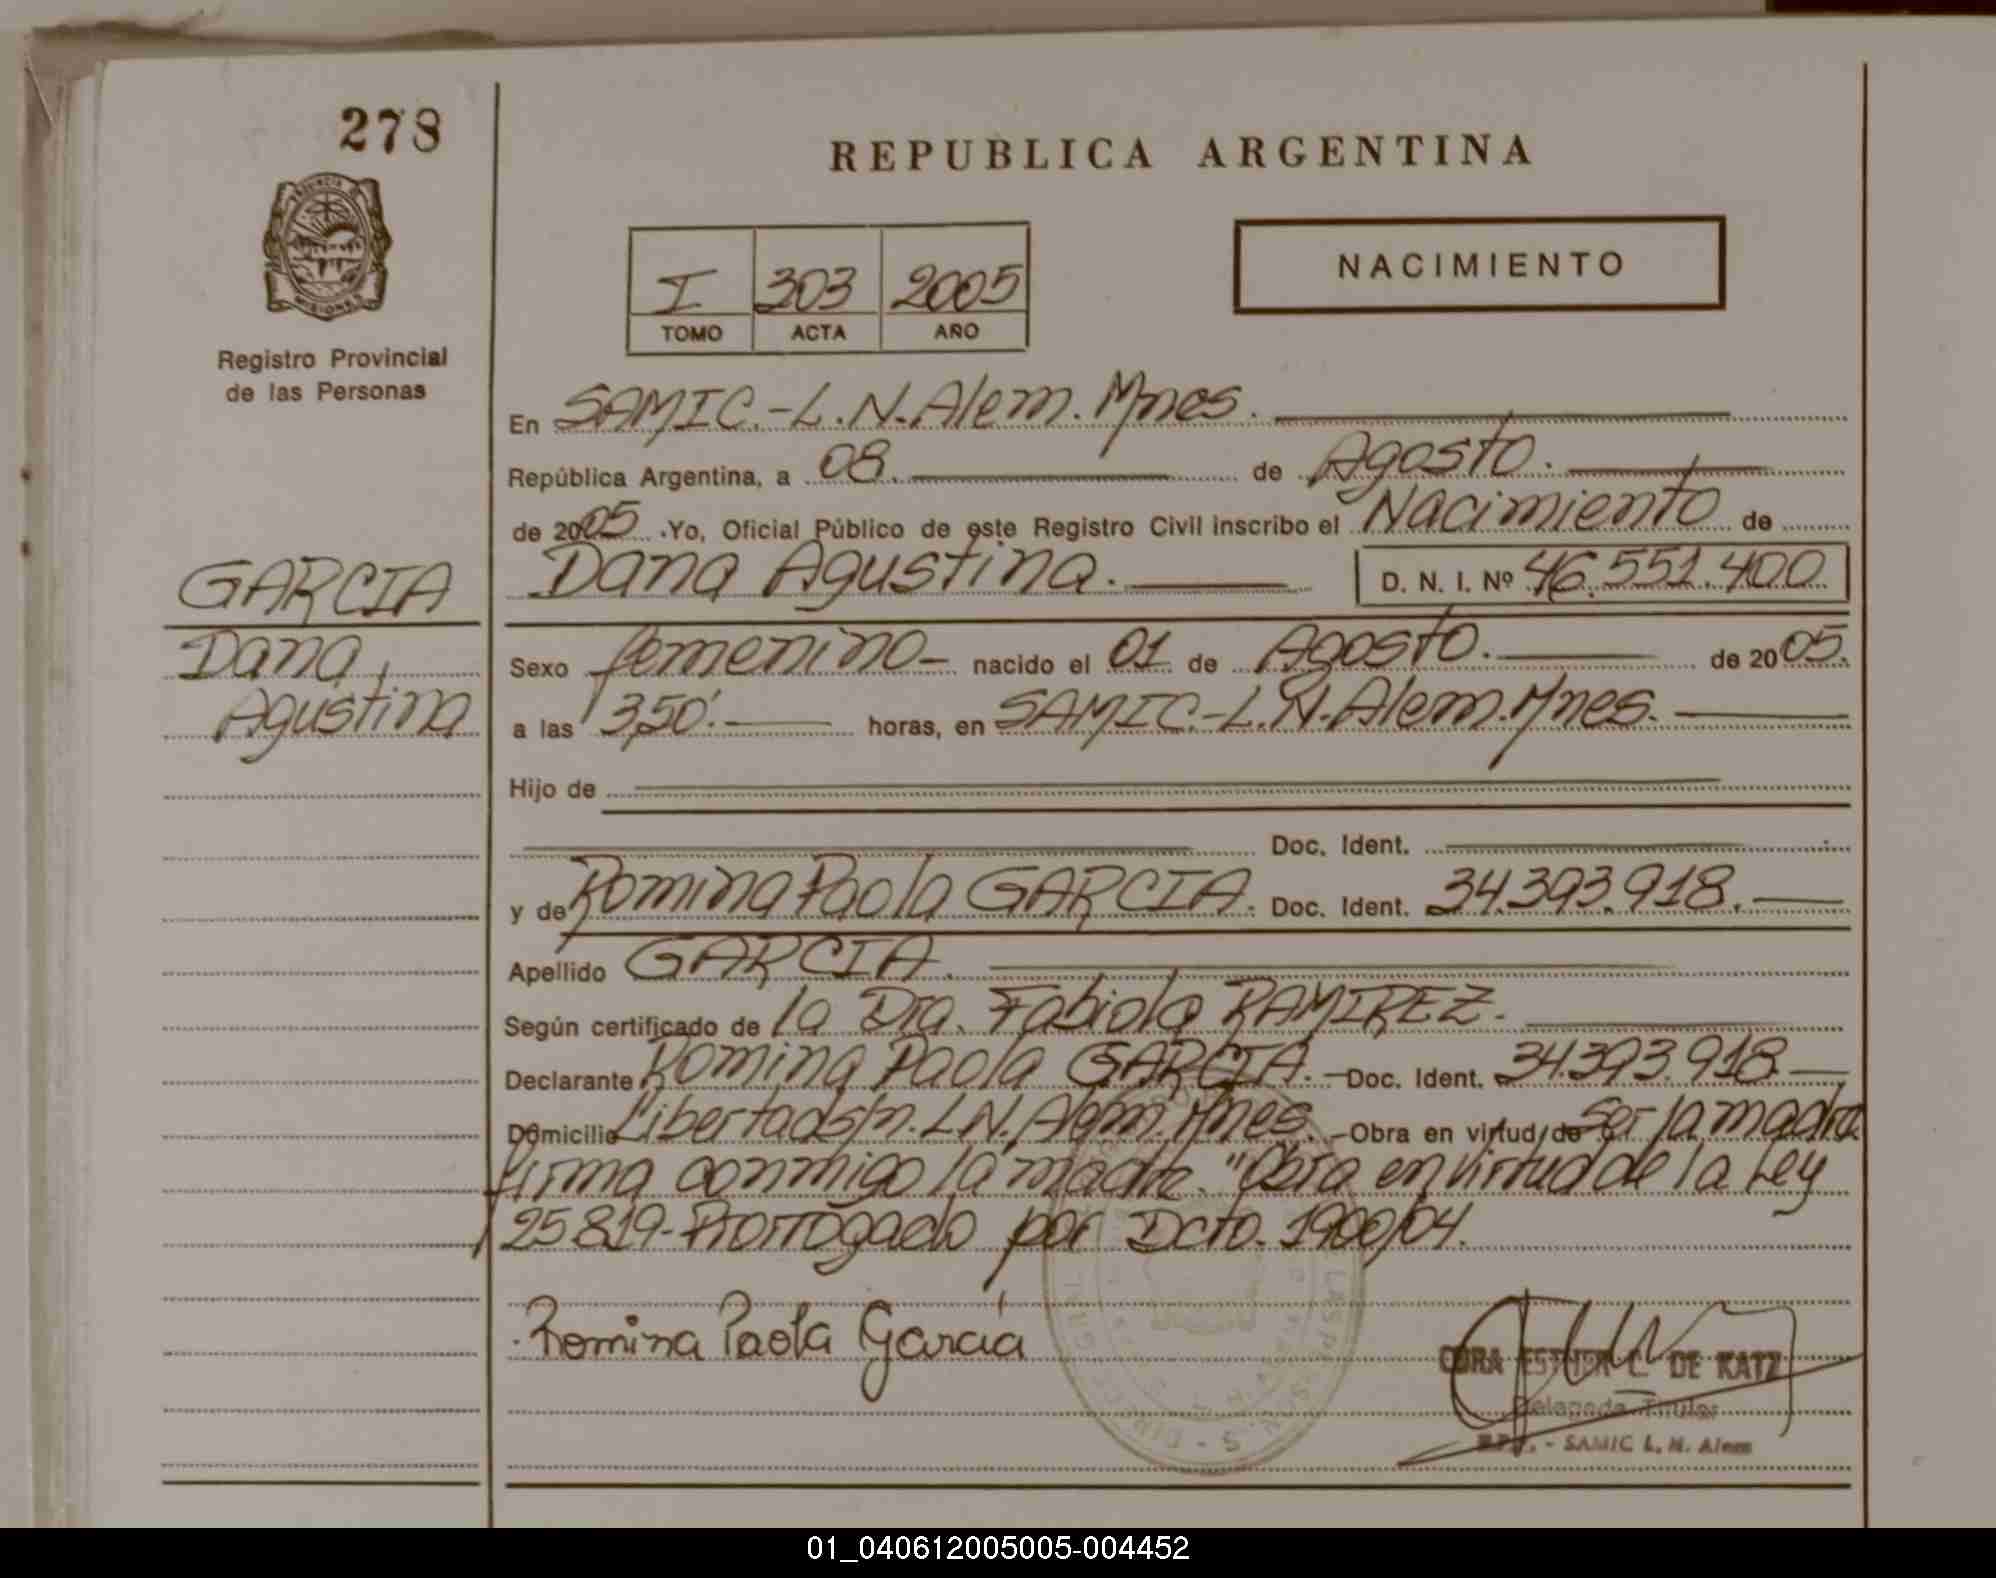 278
REPUBLICA ARGENTINA
PROVINCIA DE
MISIONES
Registro Provincial
de las Personas
I 303 2005
TOMO ACTA AÑO
NACIMIENTO
En SAMIC.-L.N.Alem.Mnes.
República Argentina, a 08. de Agosto.
de 2005 .Yo, Oficial Público de este Registro Civil inscribo el Nacimiento de
GARCIA
Dana Agustina. D. N. I. Nº 46.551.400
Dana,
Agustina
Sexo femenino- nacido el 01 de Agosto. de 2005.
a las 13,50'. horas, en SAMIC.-L.N.Alem.Mnes.
Hijo de
Doc. Ident.
y de Romina Paola GARCIA. Doc. Ident. 34.393.918.
Apellido GARCIA.
Según certificado de la Dra. Fabiola RAMIREZ.
Declarante Romina Paola GARCIA. Doc. Ident. 34.393.918
Domicilio Libertad s/n. L.N. Alem. Mnes. Obra en virtud de Ser la madre
firma conmigo la madre. "Obra en virtud de la Ley
25819-Prorrogado por Dcto. 1900/04.
Romina Paola García
CORA ESTHER C. DE KATZ
Delegada Titular
R.P.P. - SAMIC L. N. Alem
01_040612005005-004452